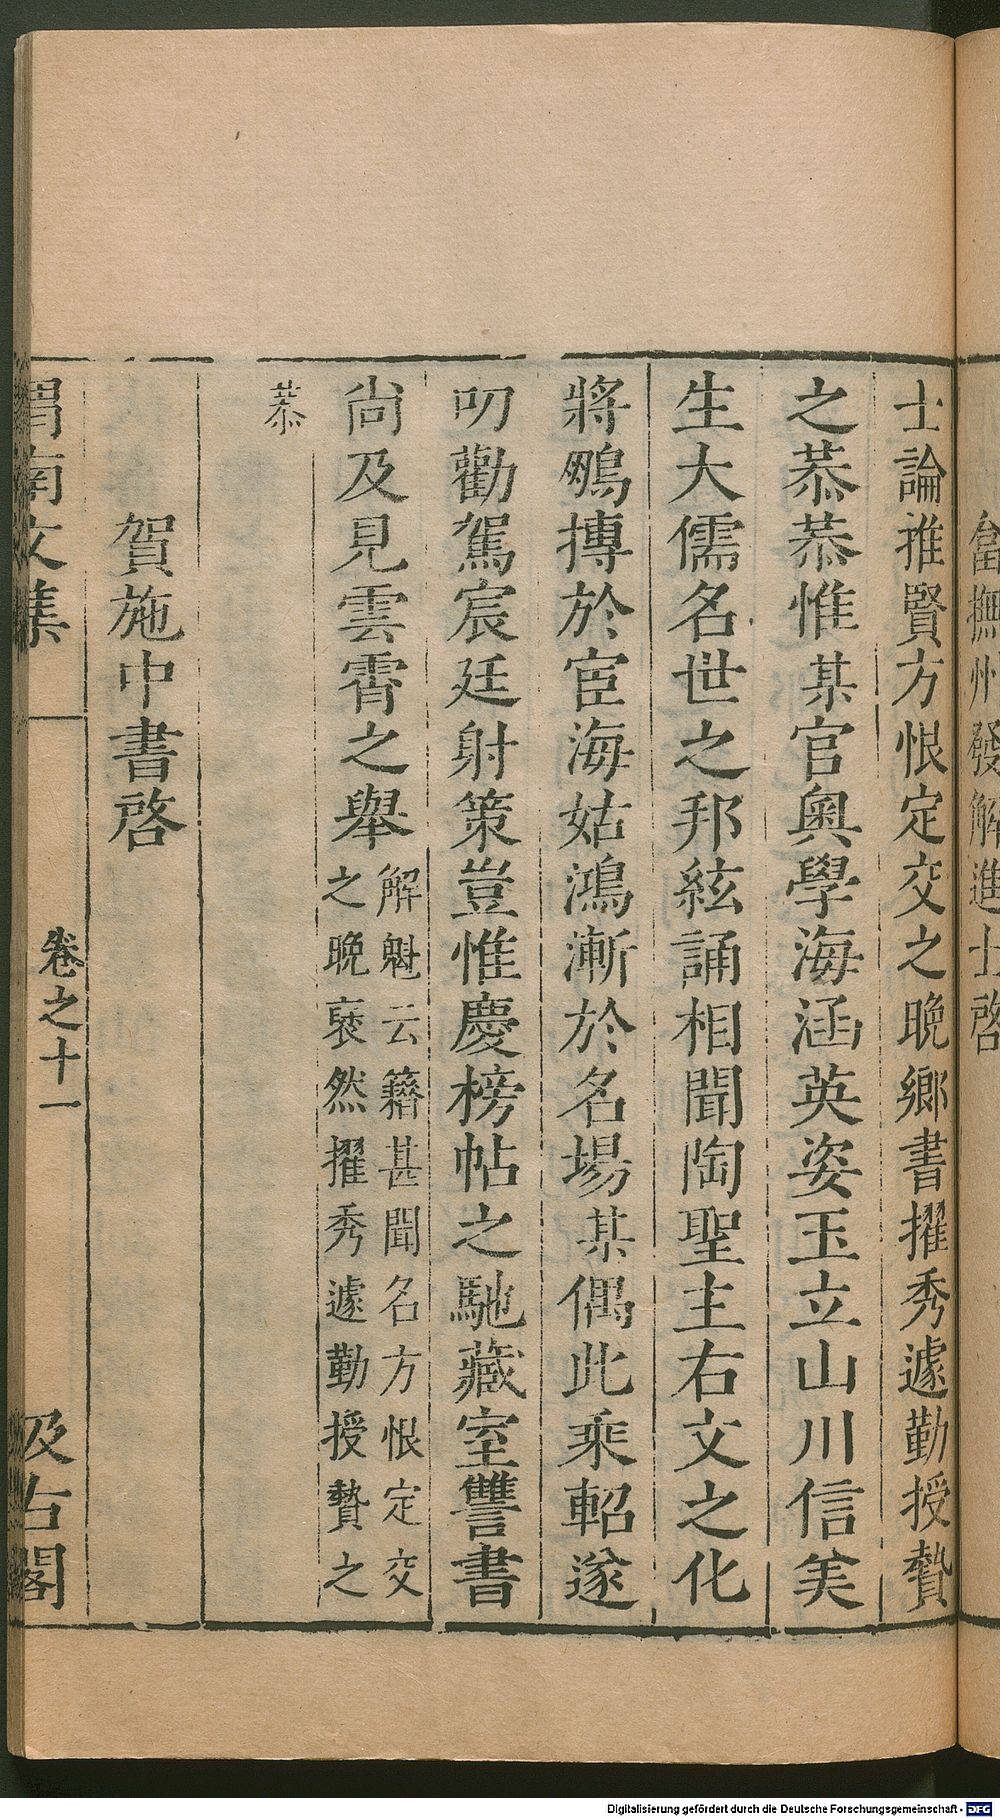 當撫州發解進士啓
士論推賢方恨定交之晚鄉書擢秀遽勤授贄
之恭恭惟某官奧學海涵英姿玉立山川信美
生大儒名世之邦絃誦相聞陶聖主右文之化
將鵬摶於宦海姑鴻漸於名場某偶此乘軺遂
叨勸駕宸廷射策豈惟慶榜帖之馳藏室讐書
尚及見雲霄之舉
解魁云籍甚聞名方恨定交
之晚裦然擢秀遽勤授贄之
恭
賀施中書啓
渭南文集
卷之十一
汲古閣
Digitalisierung gefördert durch die Deutsche Forschungsgemeinschaft - DFG